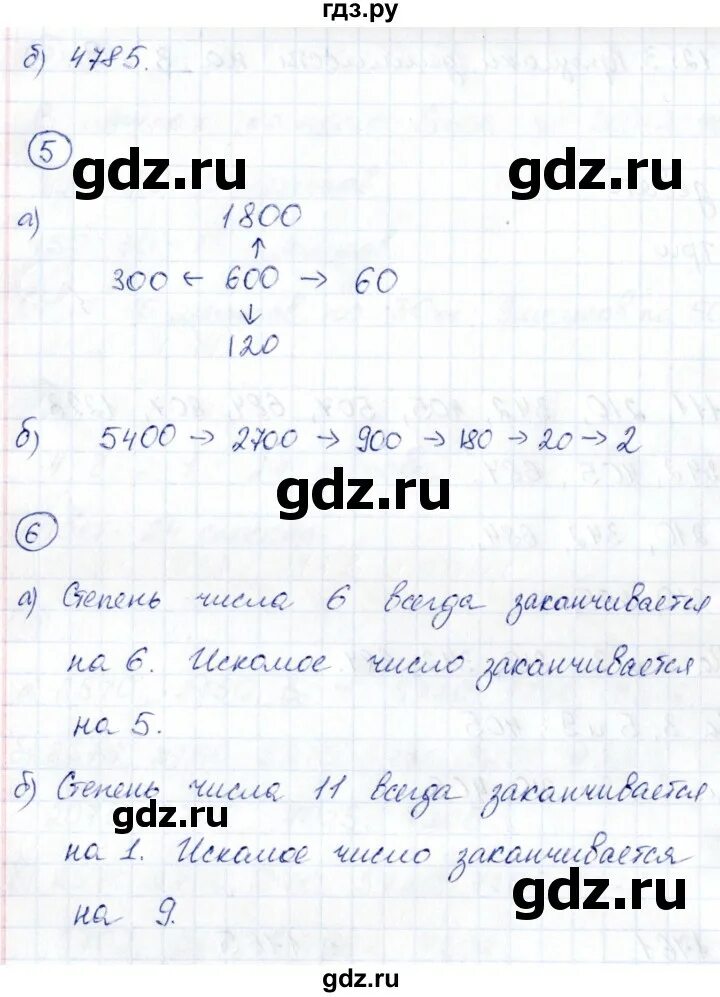 гдз.ру
б) 4785.
5
gdz.ru
gdz.ru
а)
1800
↑
300 ← 600 → 60
↓
120
б) 5400 → 2700 → 900 → 180 → 20 → 2
gdz.ru
6
а) Степень числа 6 всегда заканчивается
на 6. Искомое число заканчивается
на 5.
б) Степень числа 11 всегда заканчивается
gdz.ru
на 1. Искомое число заканчивается
gdz.ru
на 9.
gdz.ru